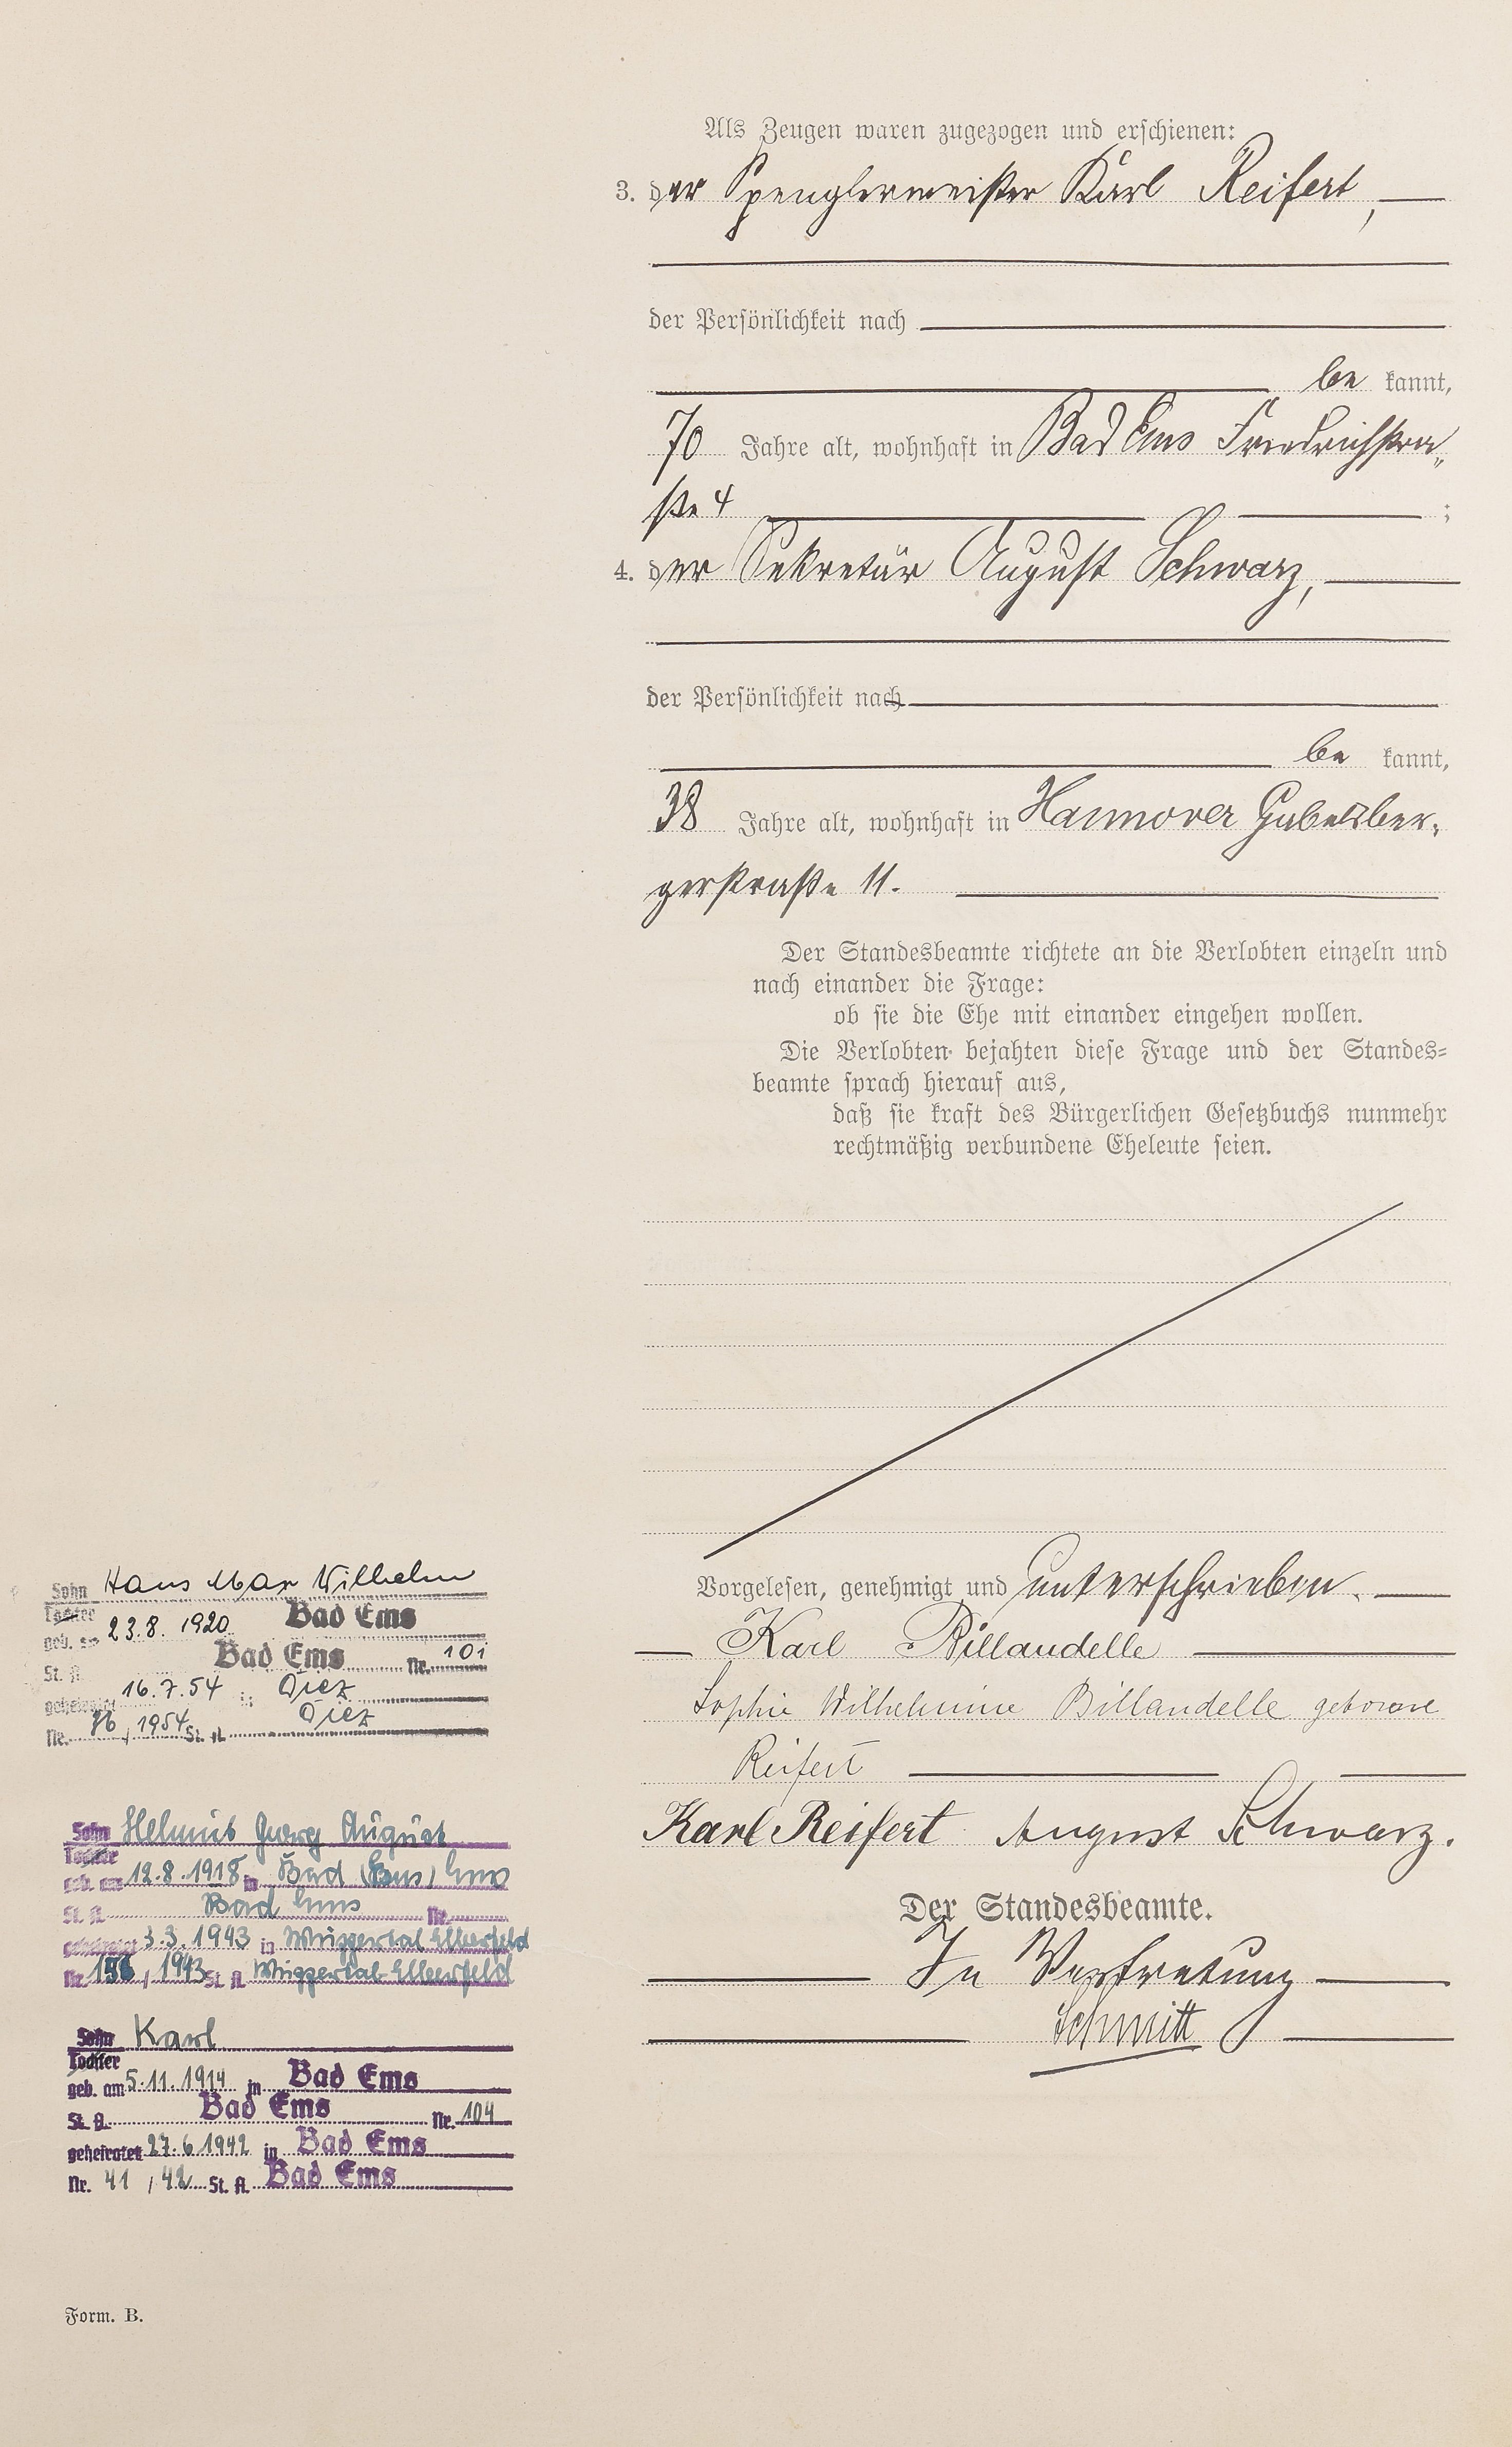 Als Zeugen waren zugezogen und erschienen:
3. der Spenglermeister Karl Reifert,
der Persönlichkeit nach
be kannt,
70 Jahre alt, wohnhaft in Bad Ems Friedrichstra„
ße 4 ;
4. der Sekretär August Schwarz,
der Persönlichkeit nach
be kannt,
38 Jahre alt, wohnhaft in Hannover Gabelsber„
gerstraße 11.
Der Standesbeamte richtete an die Verlobten einzeln und
nach einander die Frage:
ob sie die Ehe mit einander eingehen wollen.
Die Verlobten bejahten diese Frage und der Standes=
beamte sprach hierauf aus,
daß sie kraft des Bürgerlichen Gesetzbuchs nunmehr
rechtmäßig verbundene Eheleute seien.
Vorgelesen, genehmigt und unterschrieben.
Karl Billaudelle
Sophie Wilhelmine Billaudelle geborene
Reifert
Karl Reifert August Schwarz.
Der Standesbeamte.
In Vertretung
Schmitt
Sohn Hans Max Wilhelm
Tochter
geb. am 23.8. 1920 Bad Ems
St. A. Bad Ems Nr. 101
geheiratet 16.7.54 in Diez
Nr. 76 / 1954 St. A. Diez
Sohn Helmut Georg August
Tochter
geb. am 12.8.1918 in Bad (Ems) Ems
St. A. Bad Ems Nr.
geheiratet 3.3.1943 in Wuppertal Elberfeld
Nr. / 1943 St. A. Wuppertal-Elberfeld
Sohn Karl
Tochter
geb. am 5.11.1914 in Bad Ems
St. A. Bad Ems Nr. 104
geheiratet 27.6.1942 in Bad Ems
Nr. 41 / 42 St. A. Bad Ems
Form. B.